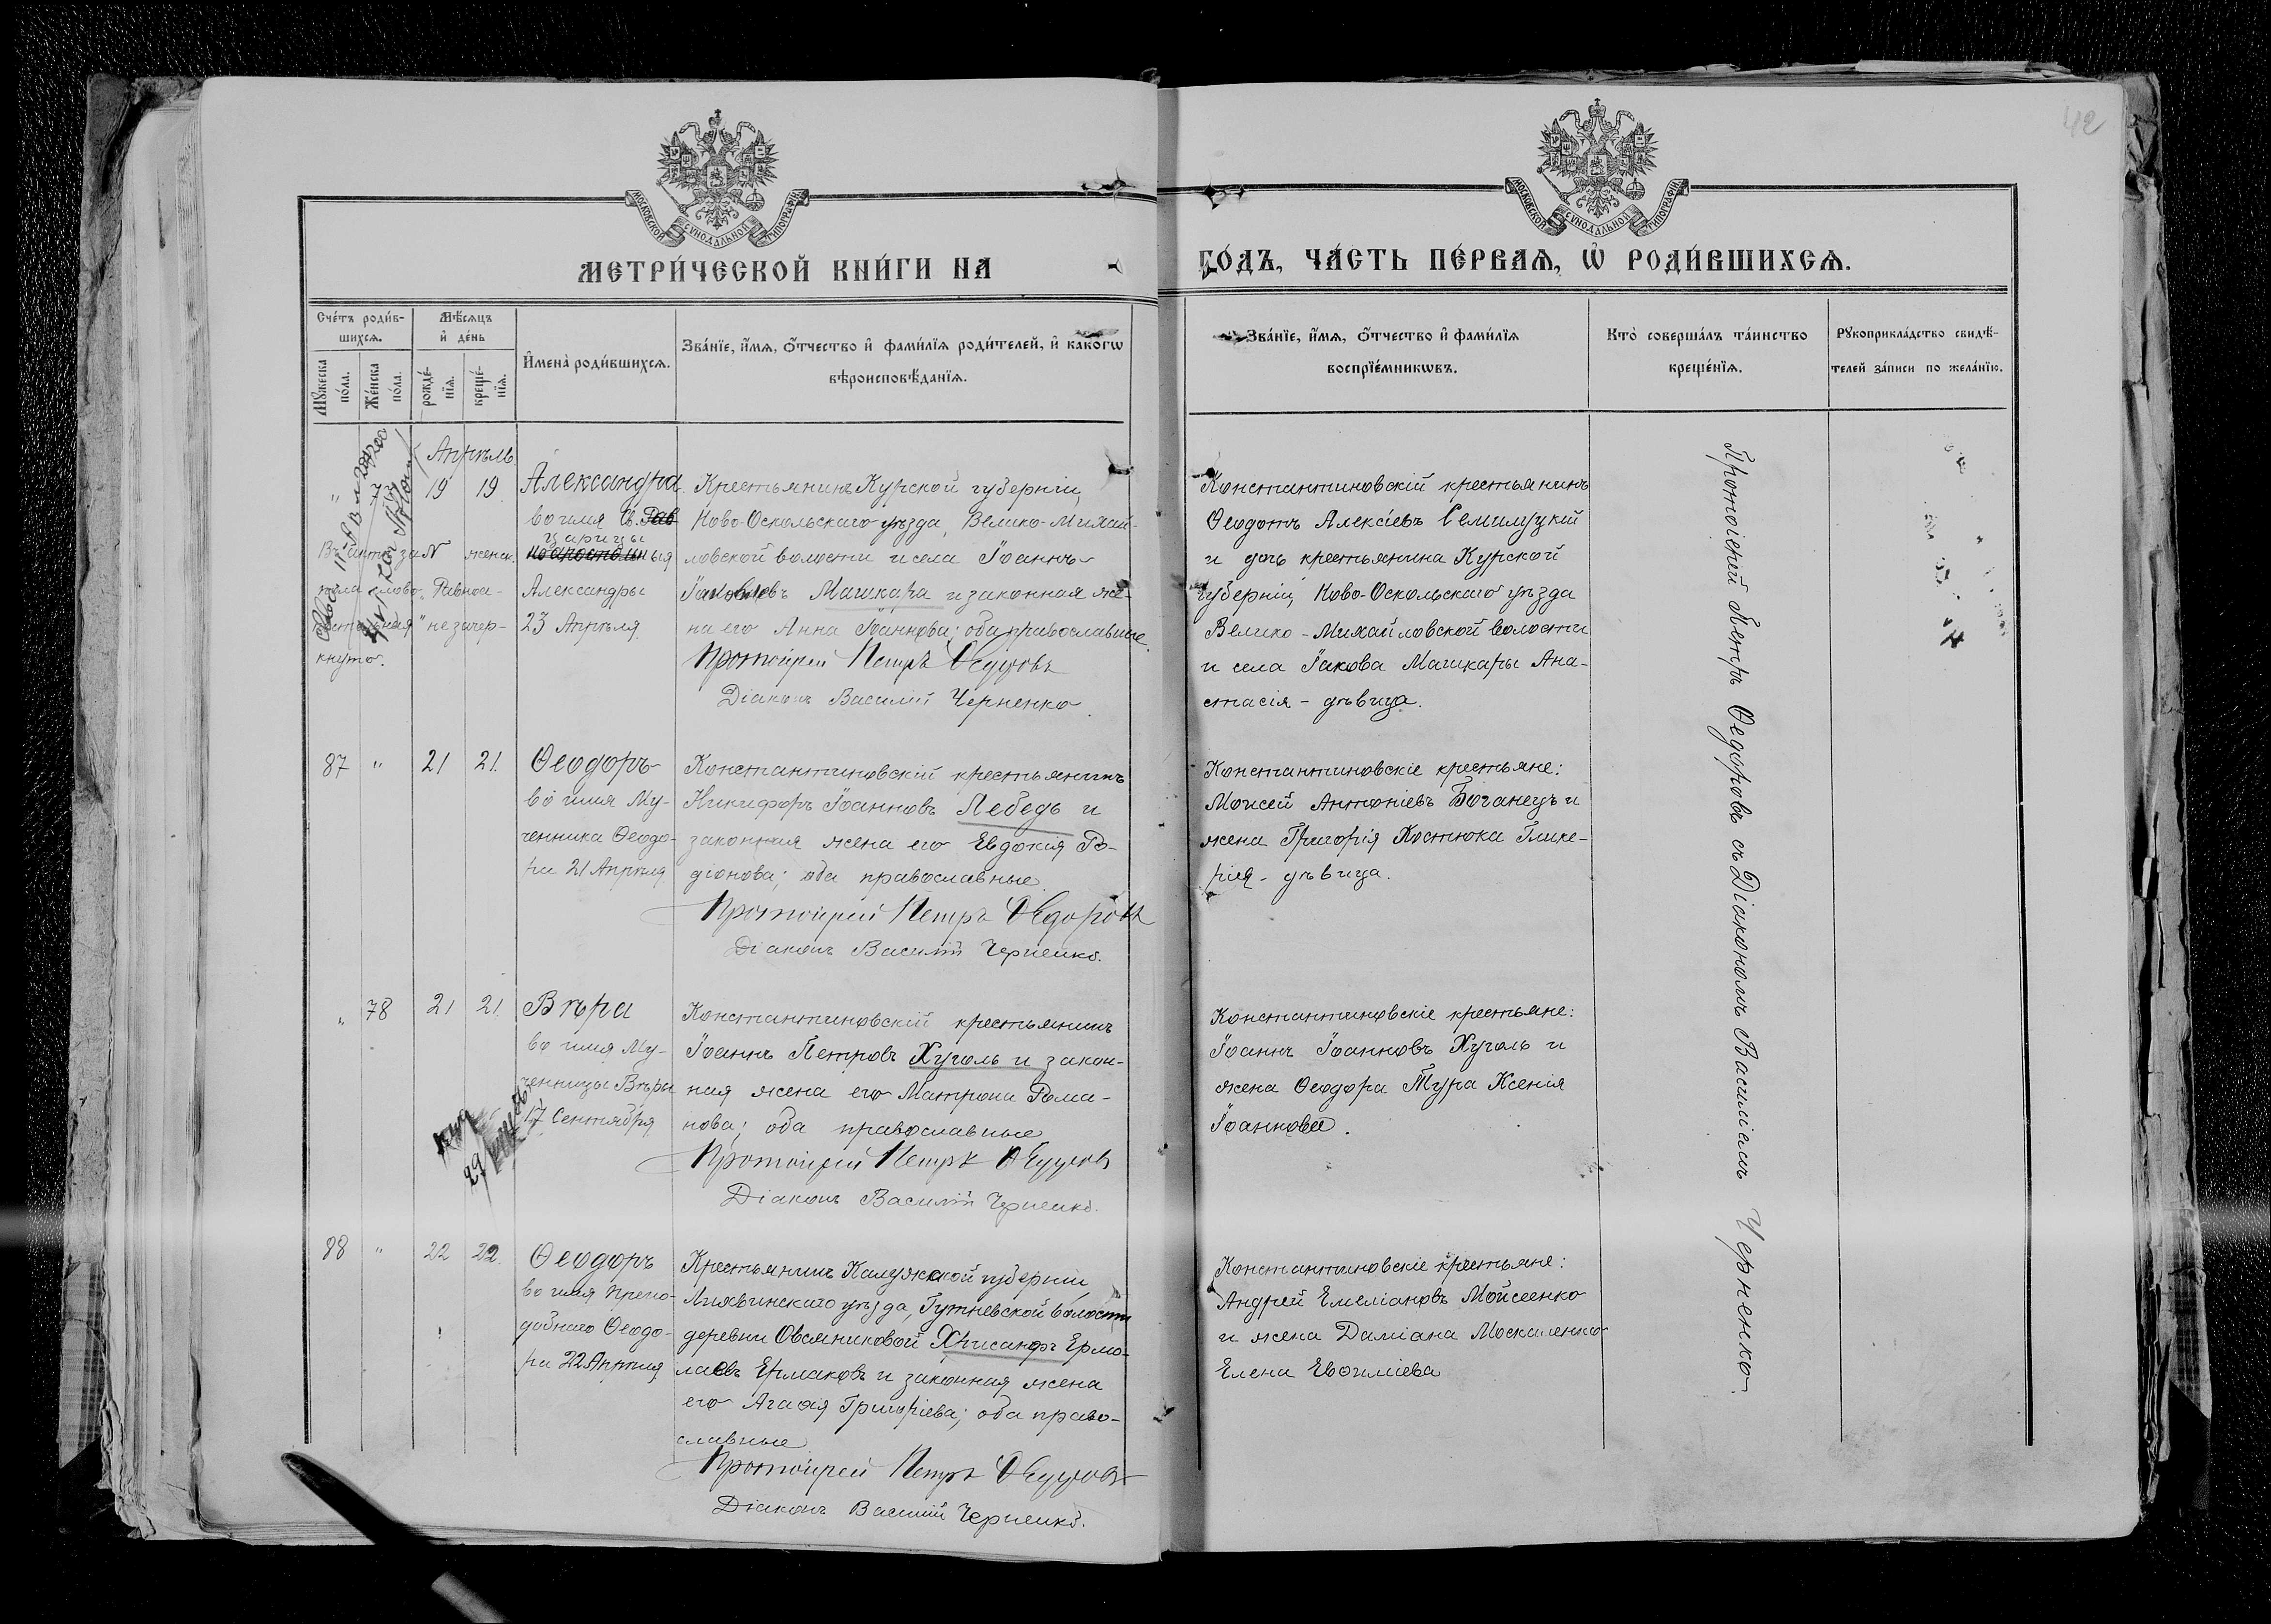 42
МОСКОВСКОЙ СѴНОДАЛЬНОЙ ТИПОГРАФІИ
МОСКОВСКОЙ СѴНОДАЛЬНОЙ ТИПОГРАФІИ
МЕТРИ́ЧЕСКОЙ КНИ́ГИ НА
ГО́ДЪ, ЧА́СТЬ ПЕ́РВАѦ, Ѡ҆ РОДИ́ВШИХСѦ.
Сче́тъ роди́в-
шихсѧ.
Мꙋ́жеска по́ла.
Же́нска по́ла.
Мѣ́сѧцъ
и҆ де́нь
рожде́-
нїѧ.
креще́-
нїѧ.
И҆мена̀ роди́вшихсѧ.
Зва́нїе, и҆́мѧ, ѻ҆́тчество и҆ фами́лїѧ роди́телей, и҆ како́гѡ
вѣроисповѣ́данїѧ.
Зва́нїе, и҆́мѧ, ѻ҆́тчество и҆ фами́лїѧ
воспрїе́мникѡвъ.
Кто̀ соверша́лъ та́инство
креще́нїѧ.
Рꙋкоприкла́дство свидѣ́-
телей за́писи по жела́нїю.
Апрѣль
" 77 19 19
Александра
во имя Св. Рав
царицы
ноапостольныя
Александры
23 Апрѣля
женск.
пола слово „Равноа-
постольныя" незачер-
кнуто.
Крестьянинъ Курской губерніи,
Ново-Оскольскаго уѣзда, Велико-Михай-
ловской волости и села Іоаннъ
Іаковлевъ Машкара и законная же-
на его Анна Іоаннова; оба православные
Протоіерей Петръ Ѳедоровъ
Діаконъ Василій Черненко.
Константиновскій крестьянинъ
Ѳеодотъ Алексіевъ Семилуцкій
и дочь крестьянина Курской
губерніи, Ново-Оскольскаго уѣзда
Велико-Михайловской волости
и села Іакова Машкары Ана-
стасія - дѣвица.
Протоіерей Петръ Ѳедоровъ съ Діакономъ Василіемъ Черненко
87 " 21 21
Ѳеодоръ
во имя Му-
ченника Ѳеодо-
ра 21 Апрѣля
Константиновскій крестьянинъ
Никифоръ Іоанновъ Лебедь и
законная жена его Евдокія Ро-
діонова; оба православные
Протоіерей Петръ Ѳедоровъ
Діаконъ Василій Черненко.
Константиновскіе крестьяне:
Моисей Антоніевъ Боганецъ и
жена Григорія Костюка Глике-
рія - дѣвица.
" 78 21 21
Вѣра
во имя Му-
ченницы Вѣры
17 Сентября
Константиновскій крестьянинъ
Іоаннъ Петровъ Хуголь и закон-
ная жена его Матрона Рома-
нова; оба православные
Протоіерей Петръ Ѳедоровъ
Діаконъ Василій Черненко.
Константиновскіе крестьяне:
Іоаннъ Іоанновъ Хуголь и
жена Ѳеодора Тура Ксенія
Іоаннова.
88 " 22 22
Ѳеодоръ
во имя Препо-
добнаго Ѳеодо-
ра 22 Апрѣля
Крестьянинъ Калужской губерніи,
Лихвинскаго уѣзда, волости
деревни Овсянниковой Хрисанфъ Ермо-
лаевъ Ермаковъ и законная жена
его Агаѳія Григоріева; оба право-
славные
Протоіерей Петръ Ѳедоровъ
Діаконъ Василій Черненко.
Константиновскіе крестьяне:
Андрей Емеліановъ Мойсеенко
и жена Даміана Москаленко
Елена Евѳиміева